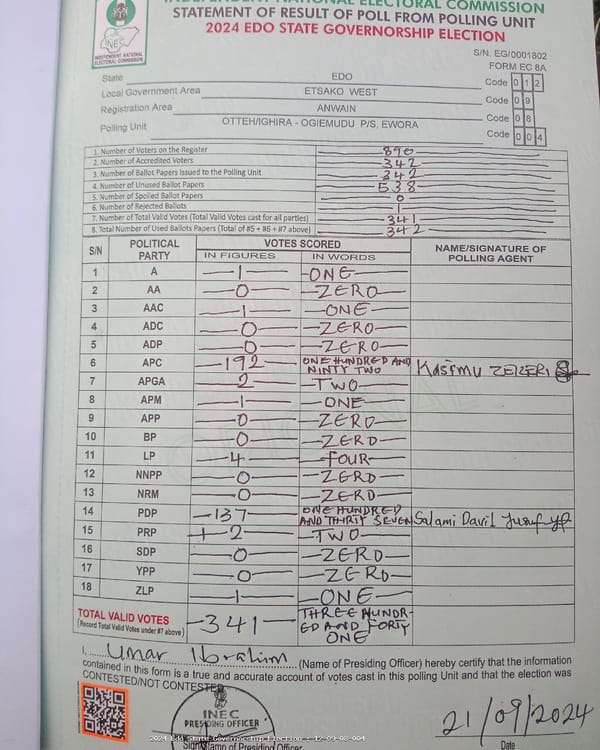 INDEPENDENT NATIONAL ELECTORAL COMMISSION
STATEMENT OF RESULT OF POLL FROM POLLING UNIT
2024 EDO STATE GOVERNORSHIP ELECTION
INEC
INDEPENDENT NATIONAL
ELECTORAL COMMISSION
S/N. EG/0001802
FORM EC 8A
State EDO Code 0 1 2
Local Government Area ETSAKO WEST Code 0 9
Registration Area ANWAIN Code 0 8
Polling Unit OTTEH/IGHIRA - OGIEMUDU P/S, EWORA Code 0 0 4
1. Number of Voters on the Register 890
2. Number of Accredited Voters 342
3. Number of Ballot Papers Issued to the Polling Unit 342
4. Number of Unused Ballot Papers 538
5. Number of Spoiled Ballot Papers 0
6. Number of Rejected Ballots 1
7. Number of Total Valid Votes (Total Valid Votes cast for all parties) 341
8. Total Number of Used Ballots Papers (Total of #5 + #6 + #7 above) 342
S/N POLITICAL PARTY VOTES SCORED NAME/SIGNATURE OF POLLING AGENT
IN FIGURES IN WORDS
1 A 1 ONE
2 AA 0 ZERO
3 AAC 1 ONE
4 ADC 0 ZERO
5 ADP 0 ZERO
6 APC 192 ONE HUNDRED AND NINTY TWO Kasimu ZEKERI
7 APGA 2 TWO
8 APM 1 ONE
9 APP 0 ZERO
10 BP 0 ZERO
11 LP 4 FOUR
12 NNPP 0 ZERO
13 NRM 0 ZERO
14 PDP 137 ONE HUNDRED AND THIRTY SEVEN Salami David Yusuf
15 PRP 2 TWO
16 SDP 0 ZERO
17 YPP 0 ZERO
18 ZLP 1 ONE
TOTAL VALID VOTES 341 THREE HUNDRED AND FORTY ONE
(Record Total Valid Votes under #7 above)
I, Umar Ibrahim (Name of Presiding Officer) hereby certify that the information
contained in this form is a true and accurate account of votes cast in this polling Unit and that the election was
CONTESTED/NOT CONTESTED
INEC
PRESIDING OFFICER
21/09/2024
2024 Edo State Governorship Election - 12-09-08-004
Sign/Stamp of Presiding Officer
Date